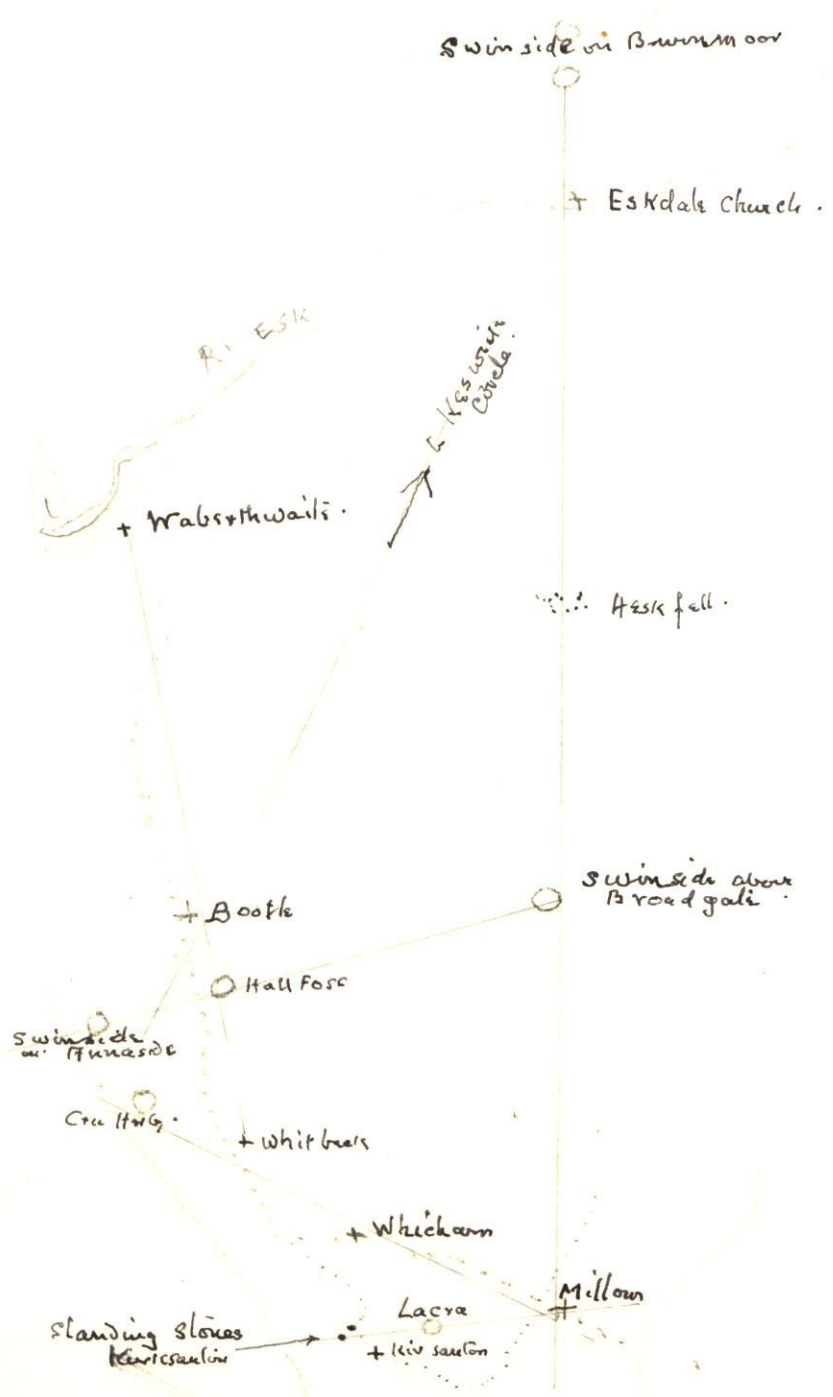 Swinside on Burnmoor
Eskdale Church .
R. ESK
to Keswick
Circle.
Waberthwaite .
Hesk fell .
Swinside above
Broadgate .
Bootle
Hall Foss
Swinside
Annaside
Whitbeck
Whicham
Millom
Lacra
Standing Stones
Kirksanton
Kirksanton